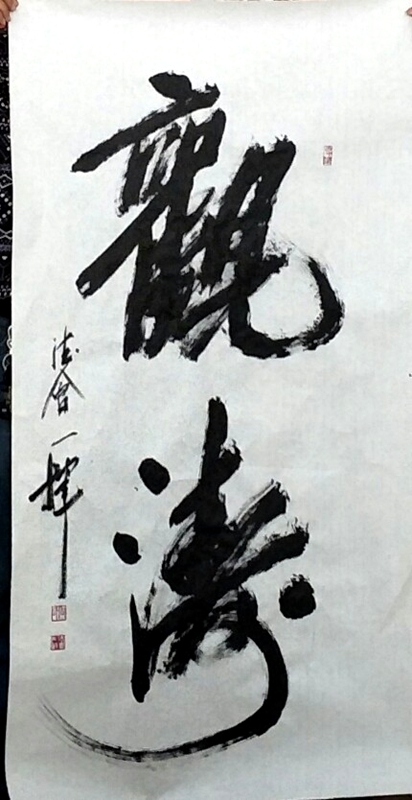 觀濤
法會一揮